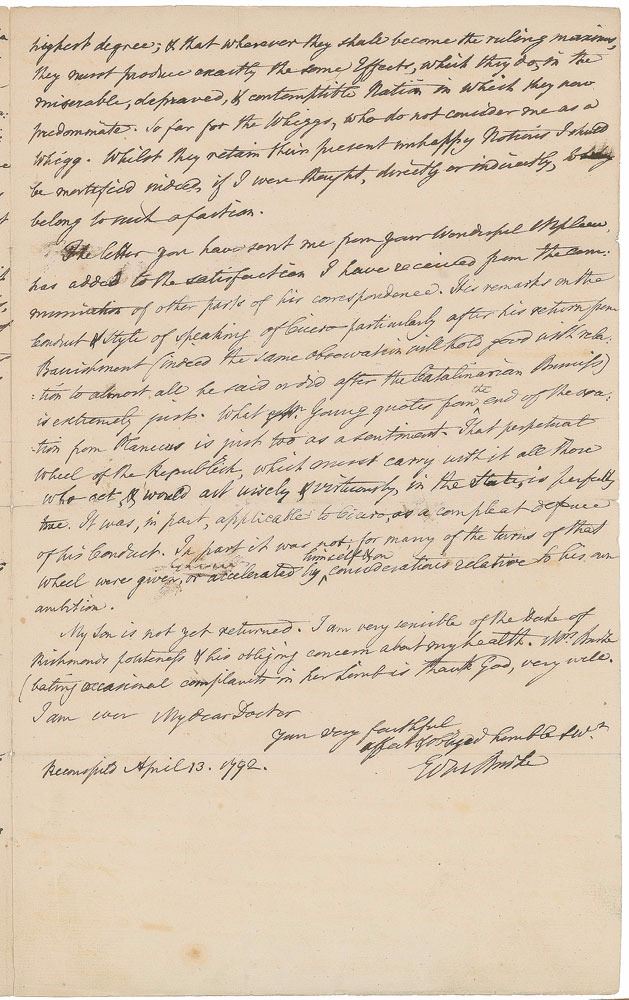 highest degree; & that wherever they shall become the ruling maxims,
they must produce exactly the same Effects, which they do, in the
miserable, depraved, & contemptible Nation in which they now
predominate. So far for the Whiggs, who do not consider me as a
Whigg. Whilst they retain their present unhappy Notions I should
be mortified indeed, if I were thought, directly or indirectly, to
belong to such a faction.
The letter you have sent me from your wonderful
has added to the satisfaction I have received from the com:
munication of other parts of his correspondence. His remarks on the
Conduct & Style of speaking of Cicero particularly after his return from
Banishment (indeed the same observation will hold good with rela:
:tion to almost all he said or did after the Catalinarian
is extremely just. What Mr. Young quotes from the end of the ora:
tion from Plancus is just too as a sentiment. That perpetual
Wheel of the Republick, which must carry with it all those
who act, & would act wisely & virtuously, in the State, is perfectly
true. It was, in part, applicable to Cicero, as a compleat defence
of his Conduct. In part it was not; for many of the turns of that
wheel were given, or accelerated by himself & on considerations relative to his own
ambition.
My Son is not yet returned. I am very sensible of the Duke of
Richmonds politeness & his obliging concern about my health. Mrs. Burke
(bating occasional complaints in her limb is thank God, very well.
I am ever My dear Doctor
your very faithful
affect & obliged humble Svt.
Edm Burke
Beconsfield April 13. 1792.